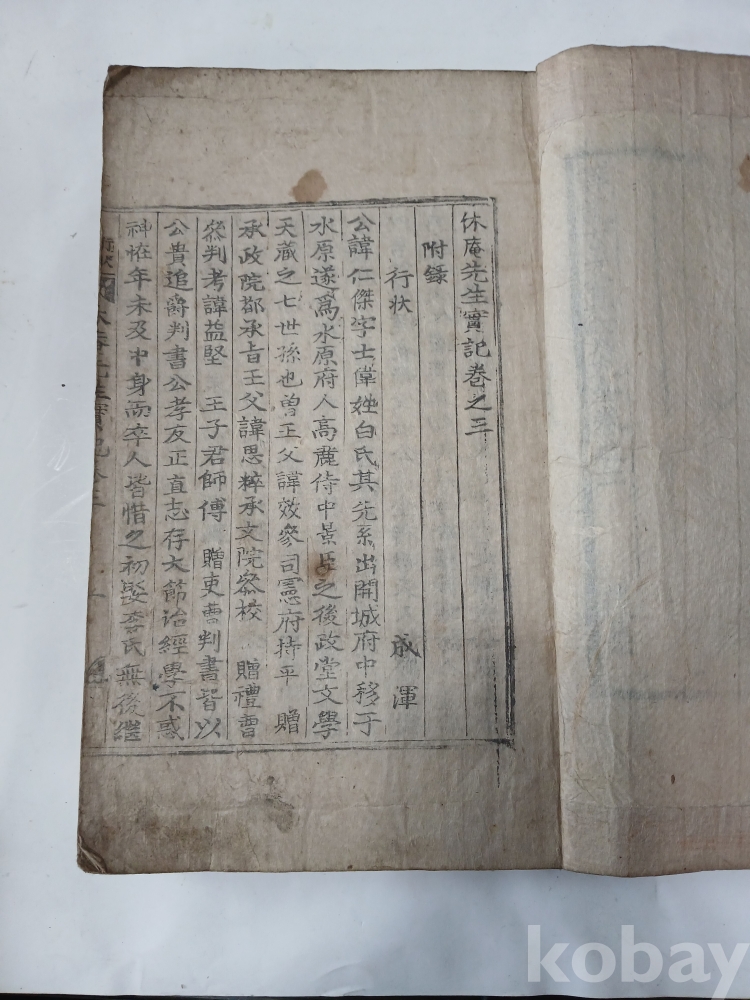 休庵先生實記卷之三
附錄
行狀 成渾
公諱仁傑字士偉姓白氏其先系出開城府中移于
水原遂爲水原府人高麗侍中景臣之後政堂文學
天蔵之七世孫也曽王父諱效參司憲府持平 贈
承政院都承旨王父諱思粹承文院叅校 贈禮曹
叅判考諱益堅 王子君師傅 贈吏曹判書皆以
公貴追爵判書公孝友正直志存大節治經學不惑
神恠年未及中身而卒人皆惜之初娶李氏無後繼
先生實記
kobay